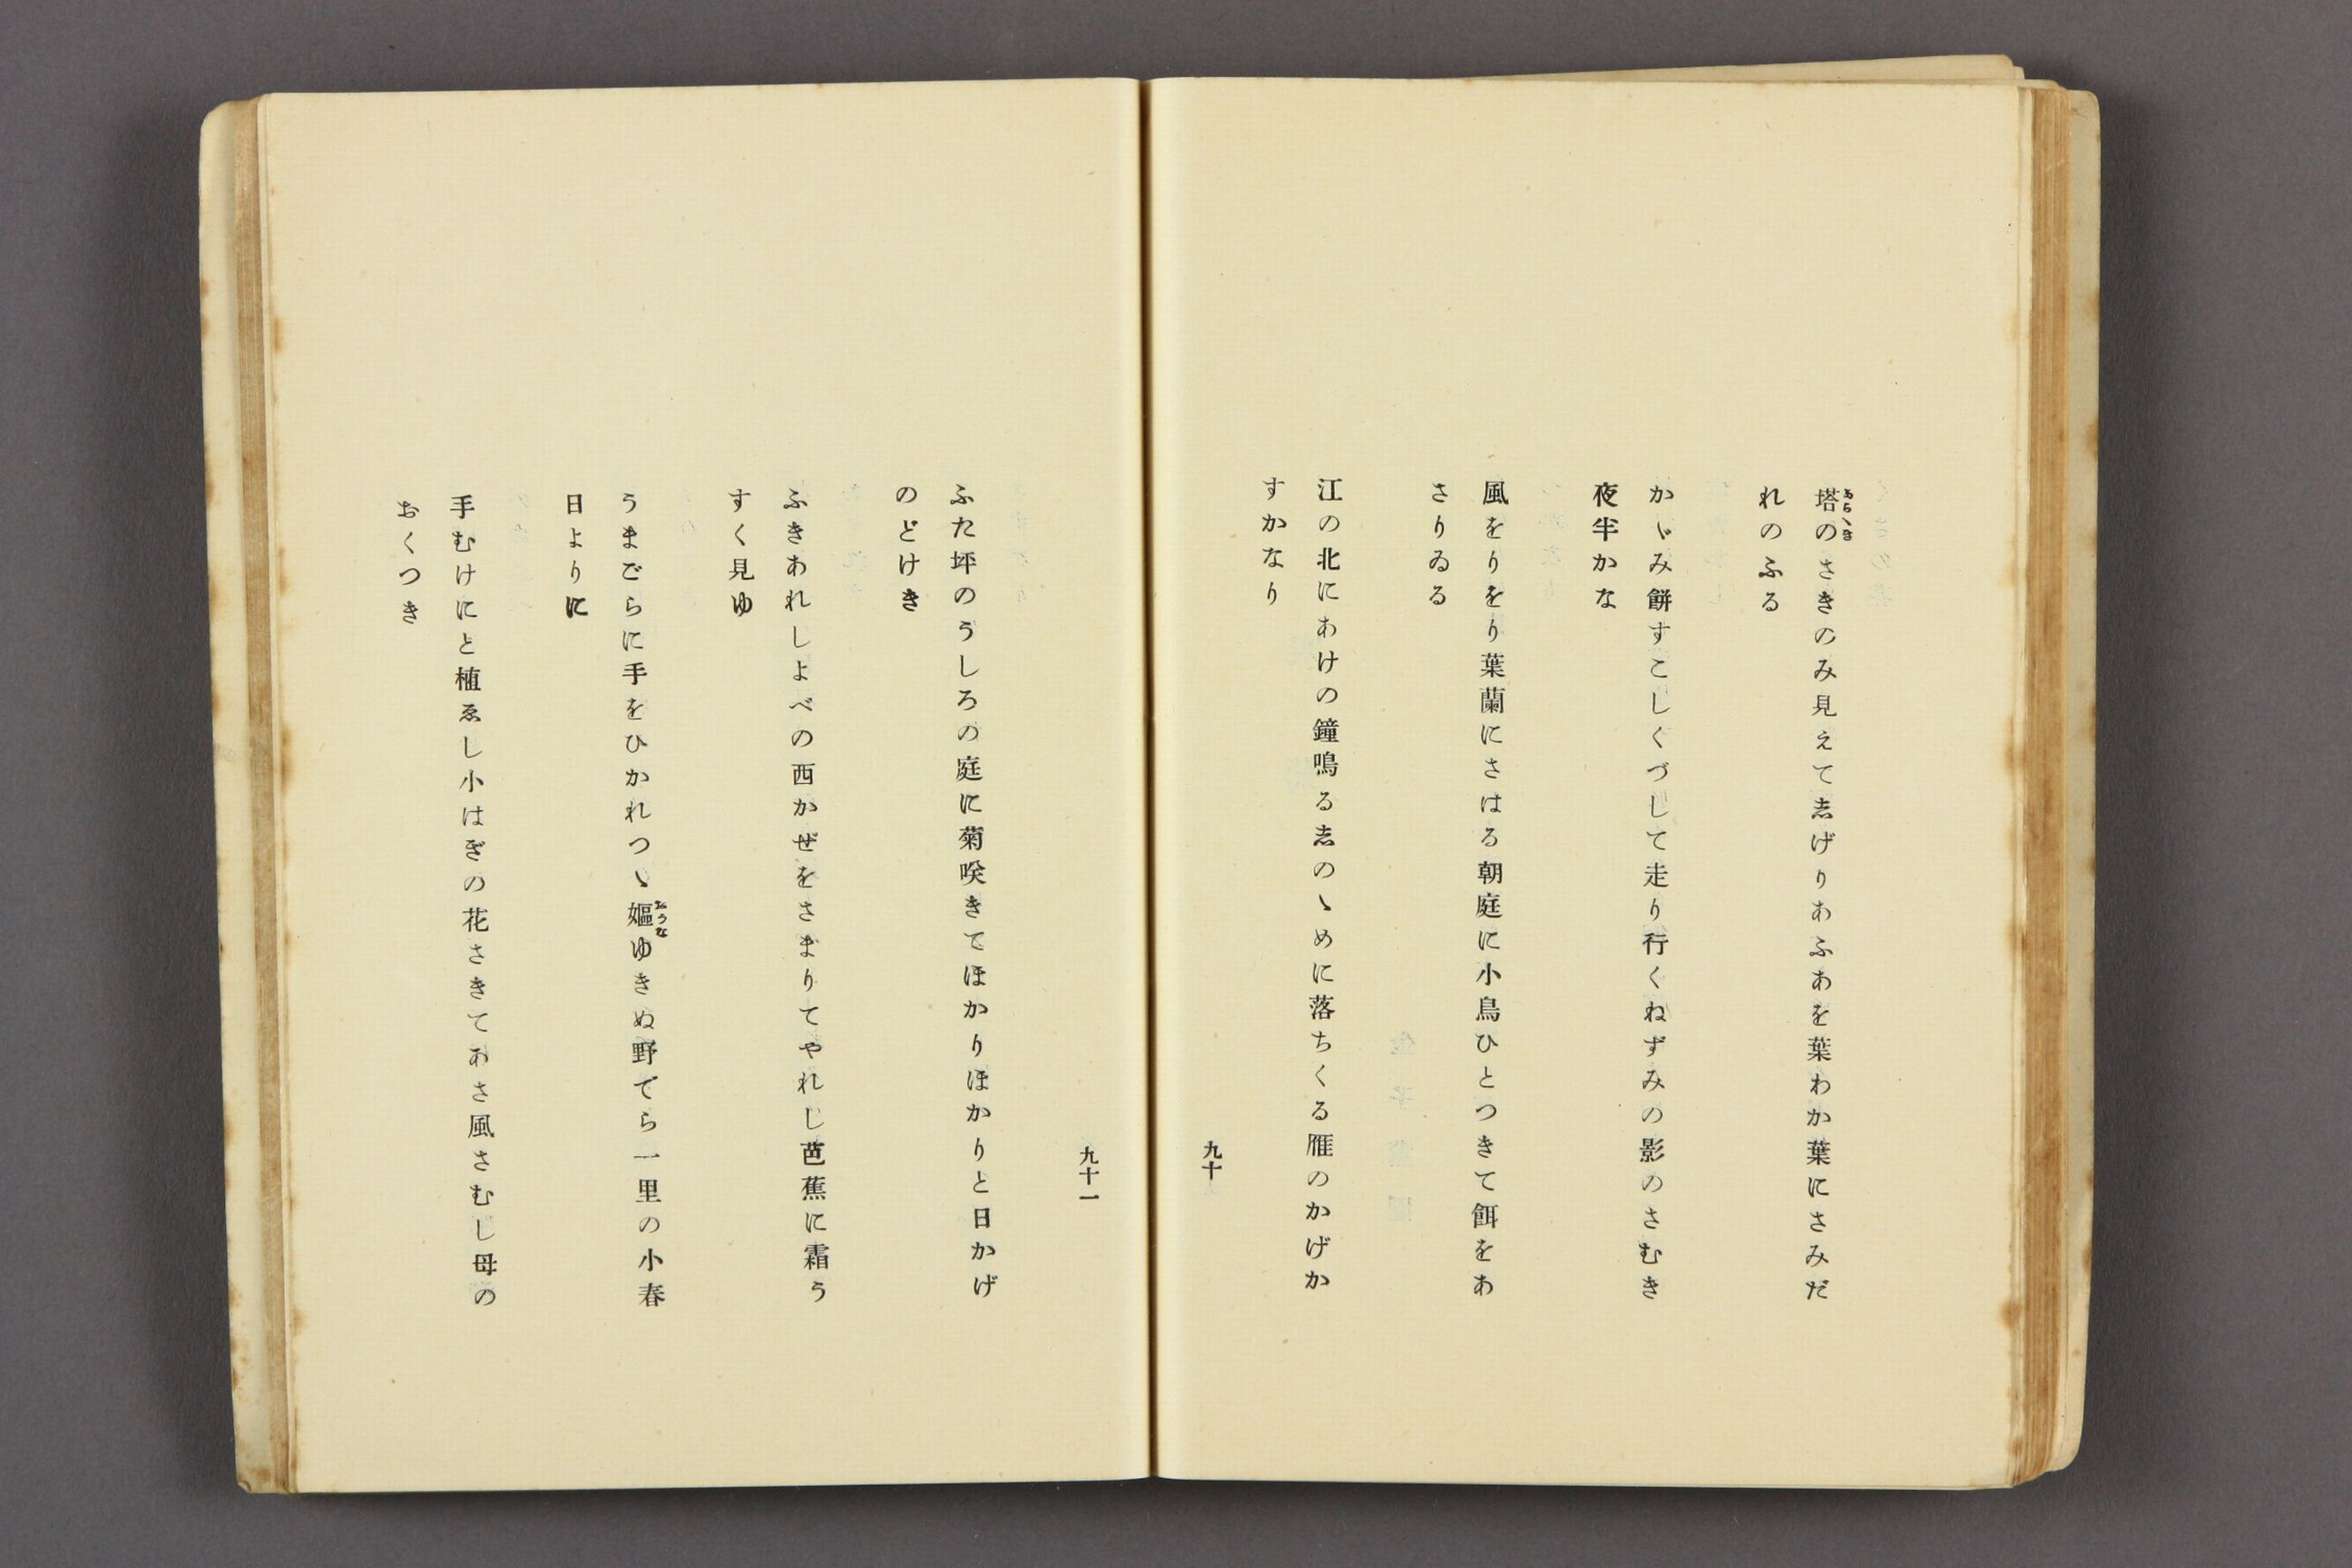 塔のさきのみ見えて志げりあふあを葉わか葉にさみだ
れのふる
かゞみ餅すこしくづして走り行くねずみの影のさむき
夜半かな
風をりをり葉蘭にさはる朝庭に小鳥ひとつきて餌をあ
さりゐる
江の北にあけの鐘鳴る志のゝめに落ちくる雁のかげか
すかなり
九十
九十一
ふた坪のうしろの庭に菊咲きてほかりほかりと日かげ
のどけき
ふきあれしよべの西かぜをさまりてやれし芭蕉に霜う
すく見ゆ
うまごらに手をひかれつゝ嫗ゆきぬ野でら一里の小春
日よりに
手むけにと植ゑし小はぎの花さきてあさ風さむし母の
おくつき